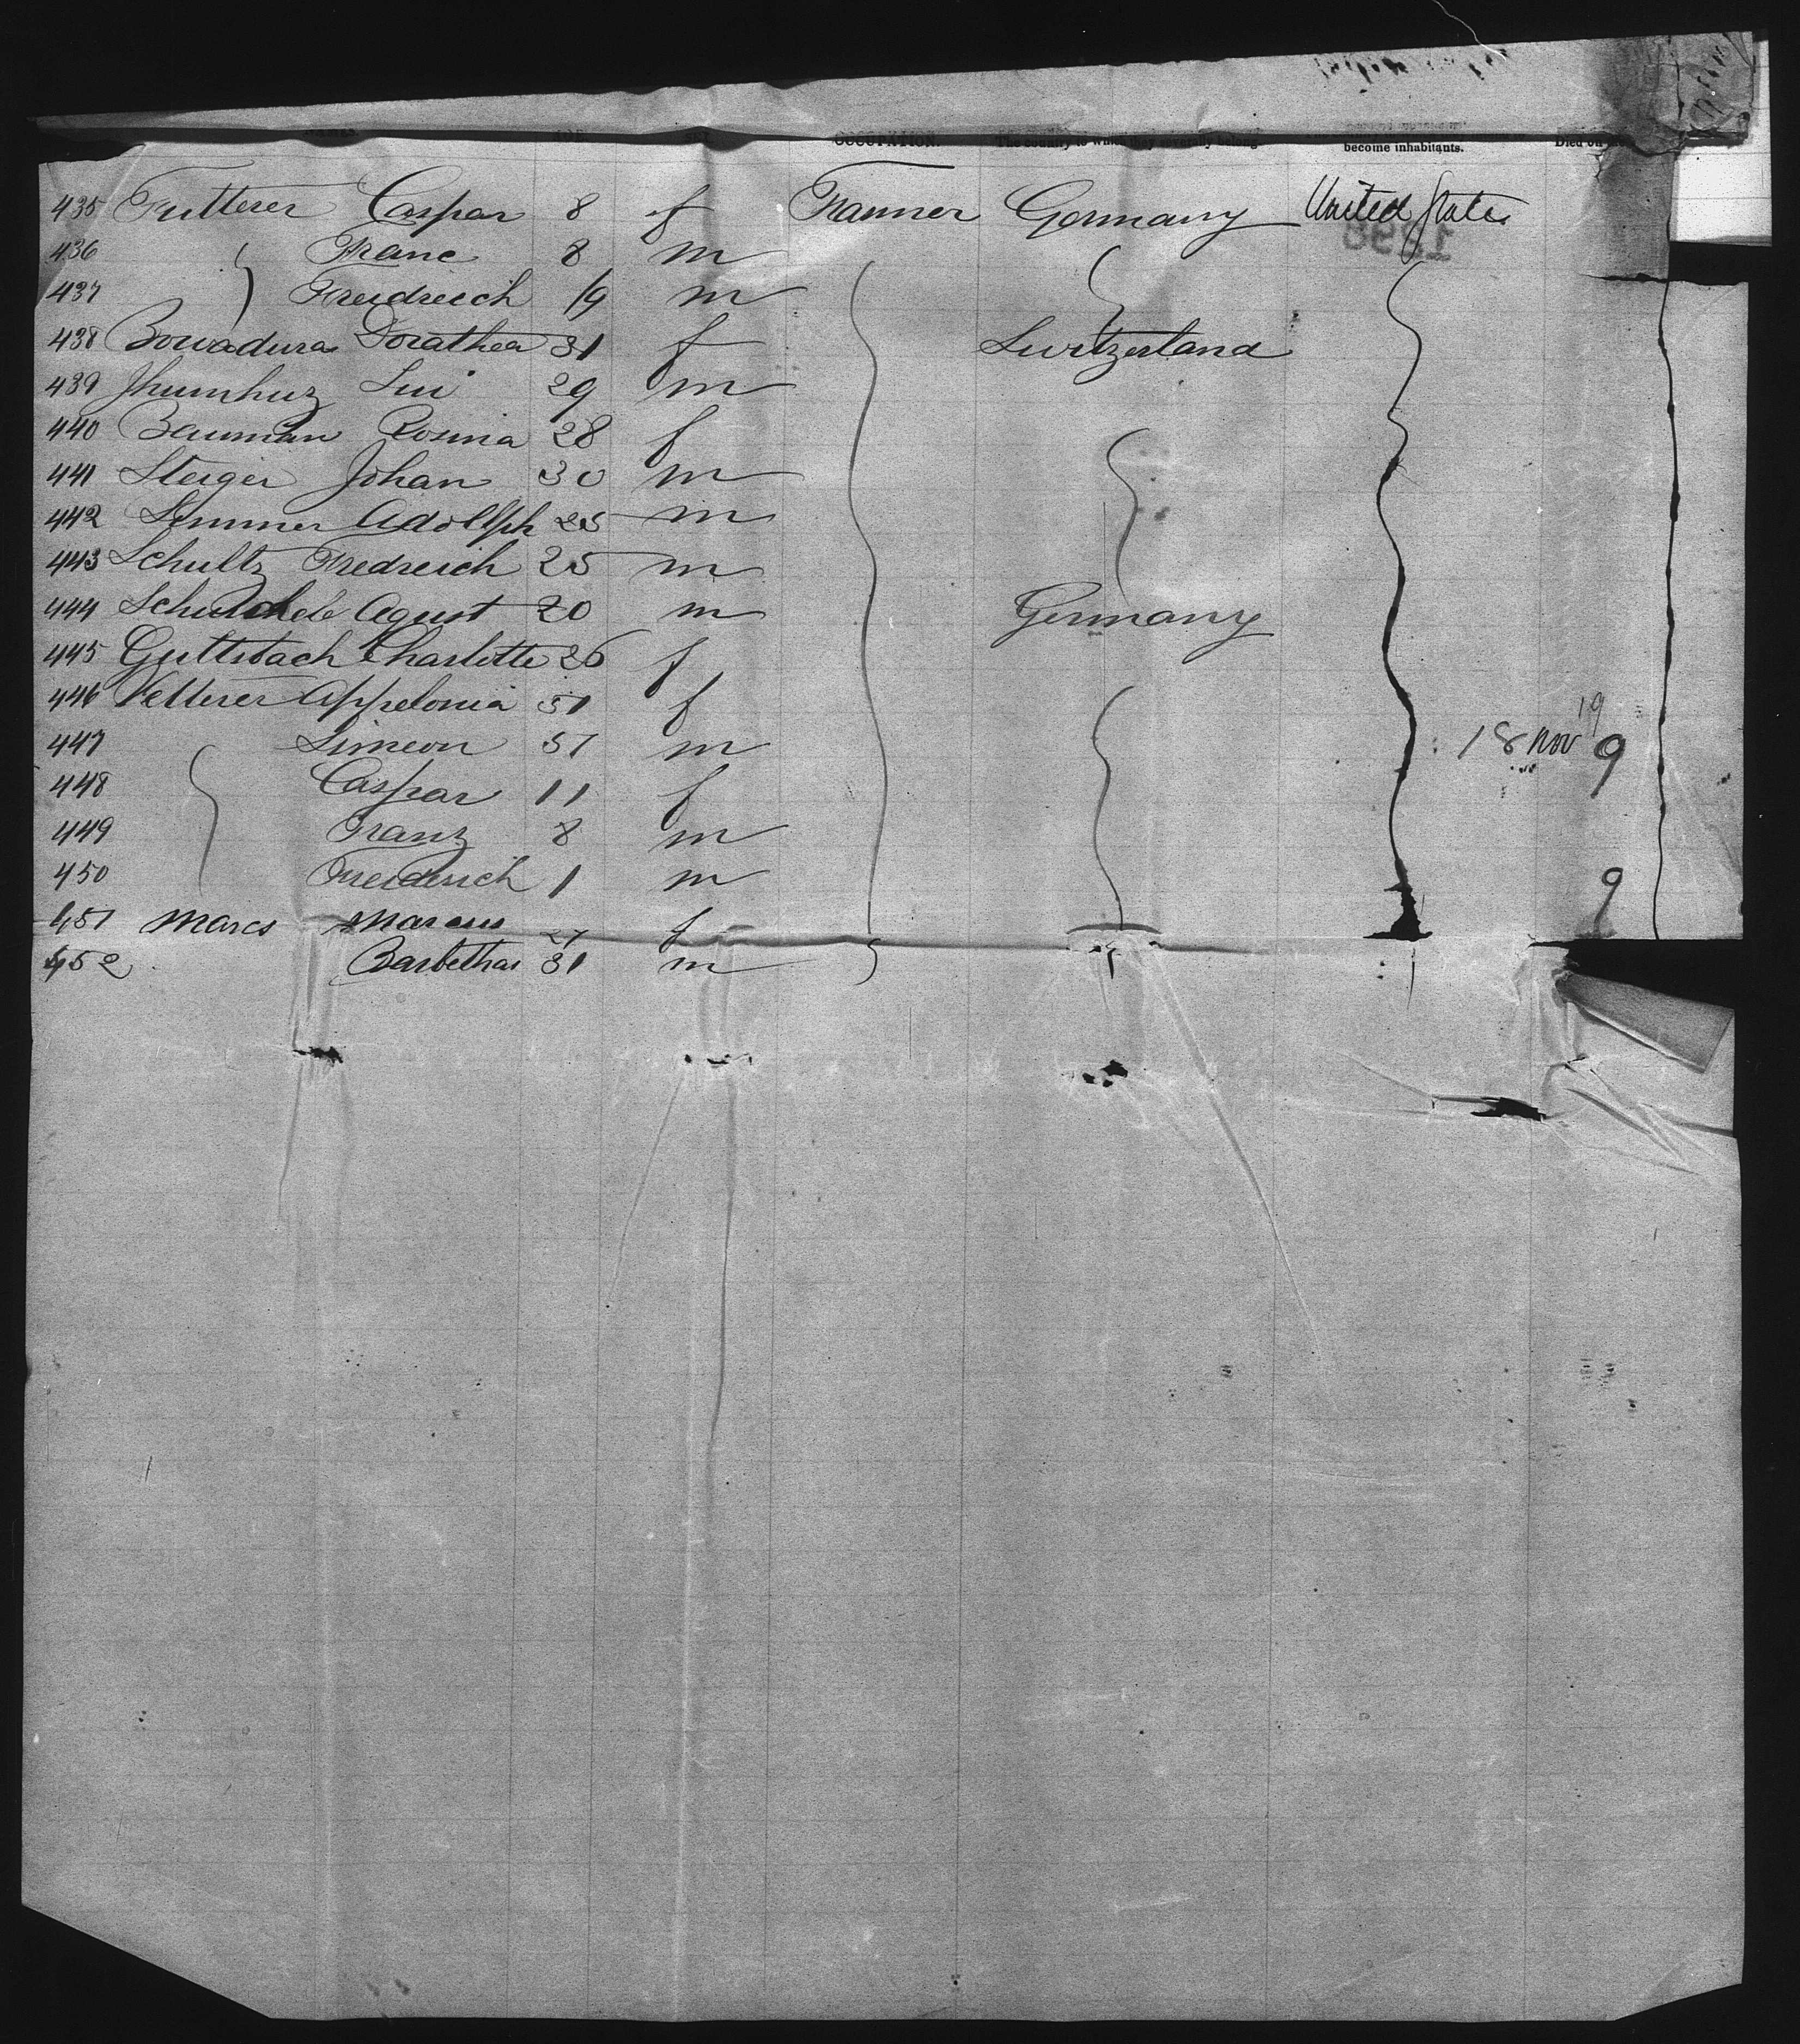 OCCUPATION. The country to which they severally belong. become inhabitants. Died on
435 Futterer Caspar 8 f Farmer Germany United States
436 Franc 8 m
437 Freidreich 19 m
438 Dorathea 31 f Switzerland
439 29 m
440 Bauman Rosina 28 f
441 Steiger Johan 30 m
442 Adollph m
443 Schultz Fredreich 25 m
444 Agust 20 m Germany
445 Guttsbach Charlotte 26 f
446 Vetterer Appelonia 51 f
447 Simeon 57 m 18 Nov 19 9
448 Caspar 11 f
449 Franz 8 m
450 Freiderich 1 m 9
451 Marcs Marcus 27 f
452 Barbethas 31 m